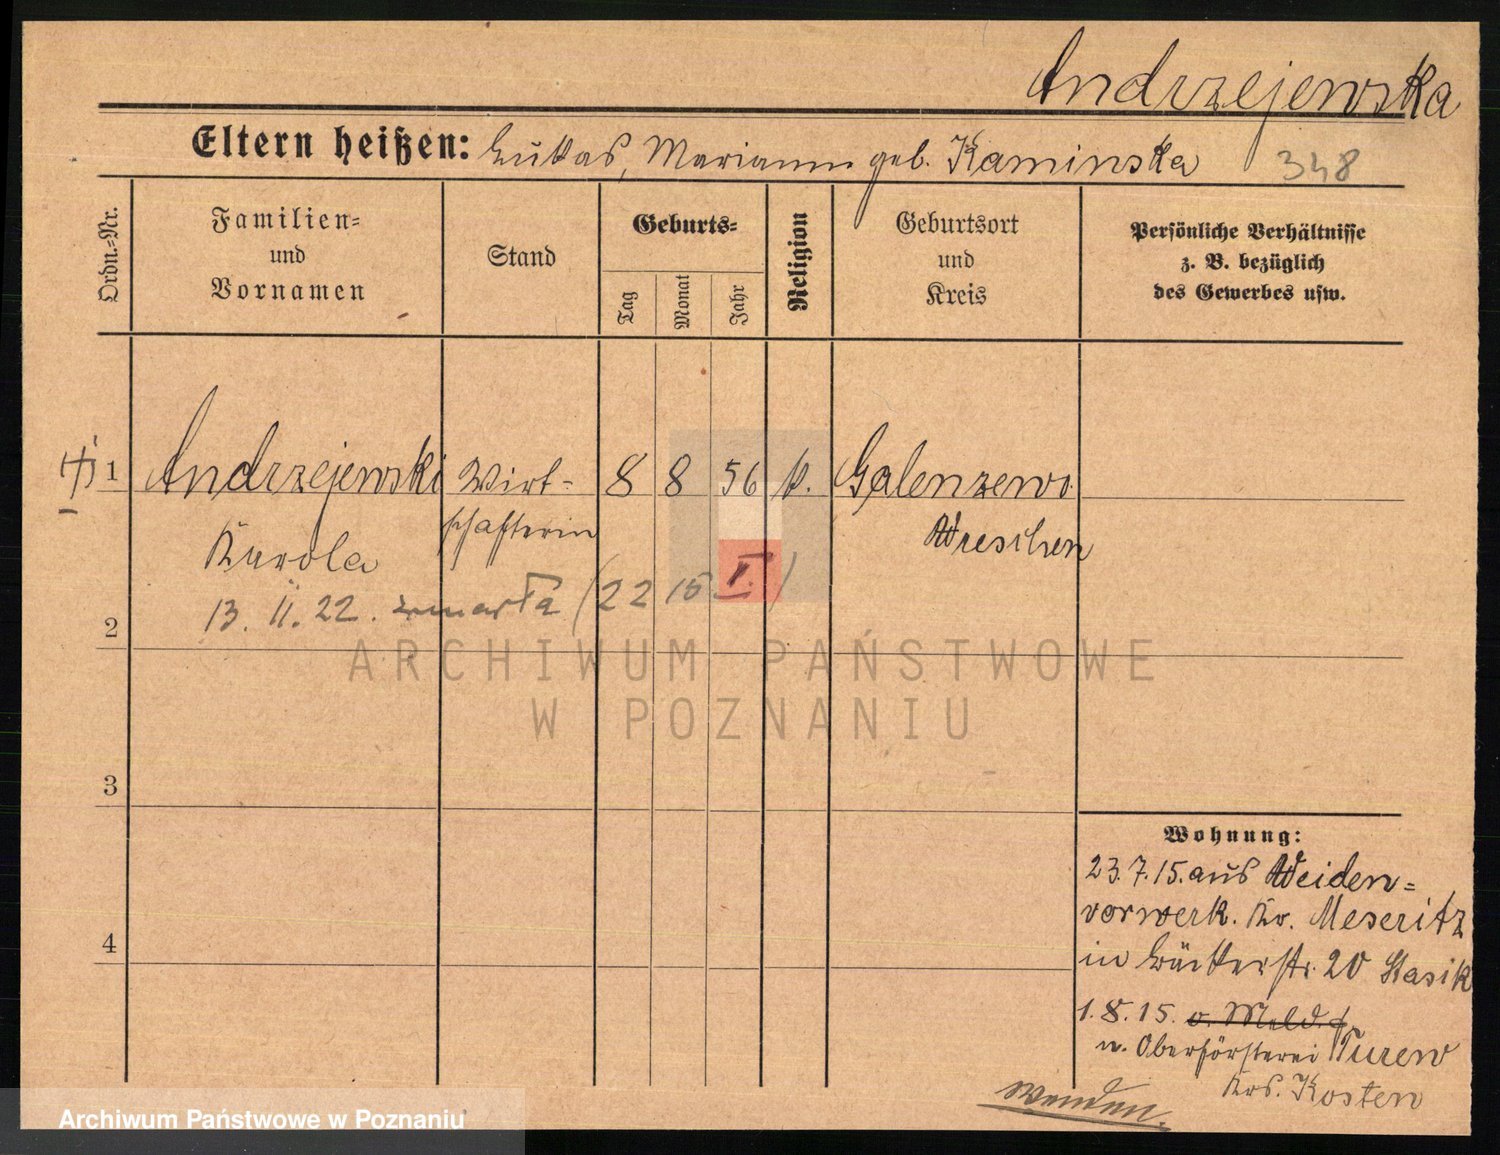 Andrzejewska
Eltern heißen: Lukas, Marianna geb. Kaminska 348
Ordn.-Nr.
Familien-
und
Vornamen
Stand
Geburts-
Tag
Monat
Jahr
Religion
Geburtsort
und
Kreis
Persönliche Verhältnisse
z. B. bezüglich
des Gewerbes usw.
1 Andrzejewski Wirt- 8 8 56 k. Galenzewo
schafterin
Karola Wreschen
13. II. 22. zmarła (22 15 I.)
2
ARCHIWUM PAŃSTWOWE
W POZNANIU
3
Wohnung:
23.7.15. aus Weiden-
vorwerk. Kr. Meseritz
4
in Bäckerstr. 20 Stasik
1.8.15. o. Meld.
n. Oberförsterei Turew
Krs. Kosten
wenden.
Archiwum Państwowe w Poznaniu